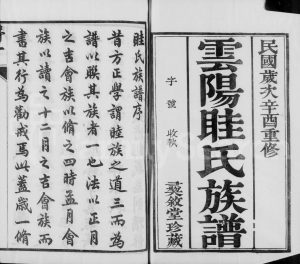 民國歲次辛酉重修
雲陽眭氏族譜
字號 收執
敘堂珍藏
眭氏族譜序
昔方正學謂睦族之道三而為
譜以聯其族者一也法以正月
之吉會族以脩之四時孟月會
族以讀之十二月之吉會族而
書其行為勸戒焉此蓋歲一脩